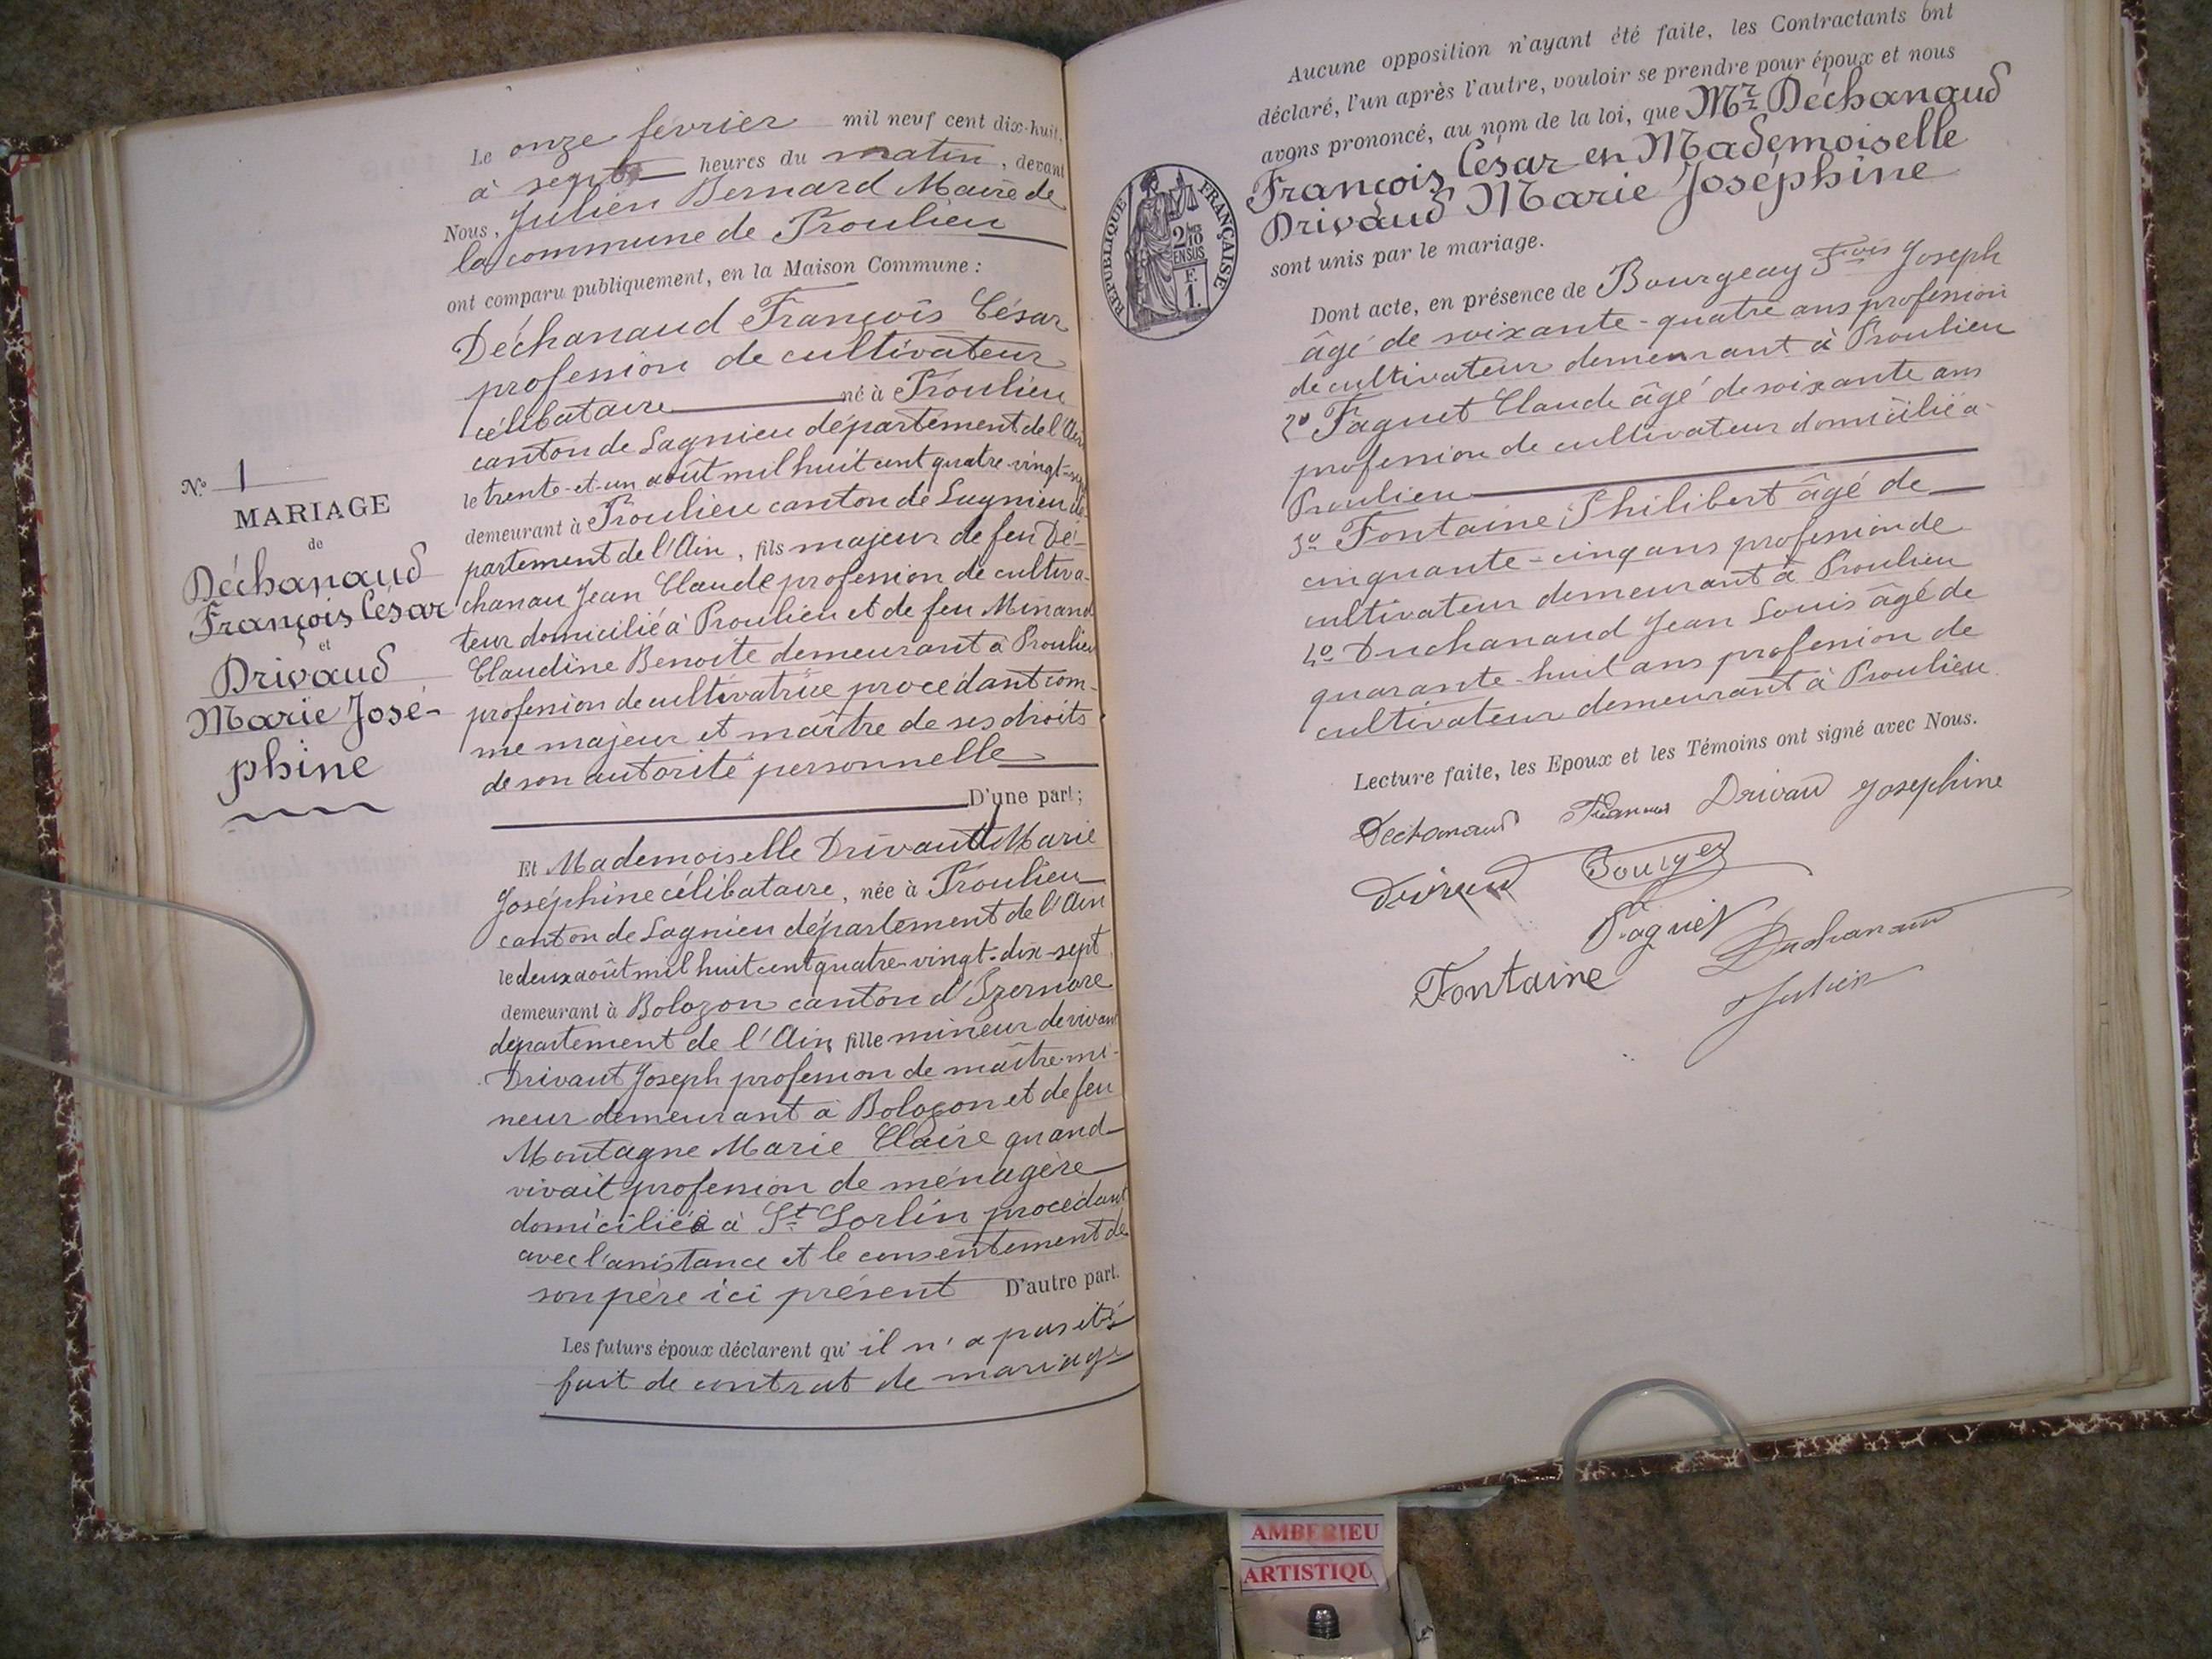 N.º 1
MARIAGE
de
Déchanaud
François César
et
Drivaud
Marie José-
phine
Le onze février mil neuf cent dix-huit,
à sept heures du matin, devant
Nous, Julien Bernard Maire de
la commune de Proulieu
ont comparu publiquement, en la Maison Commune :
Déchanaud François César
profession de cultivateur
célibataire né à Proulieu
canton de Lagnieu département de l'Ain
le trente-et-un août mil huit cent quatre-vingt-
demeurant à Proulieu canton de Lagnieu dé-
partement de l'Ain, fils majeur de feu Dé-
chanau Jean Claude profession de cultiva-
teur domicilié à Proulieu et de feu Minand
Claudine Benoite demeurant à Proulieu
profession de cultivatrice procédant com-
me majeur et maître de ses droits
de son autorité personnelle
D'une part ;
Et Mademoiselle Drivaud Marie
Joséphine célibataire, née à Proulieu
canton de Lagnieu département de l'Ain
le deux août mil huit cent quatre-vingt-dix-sept
demeurant à Bolozon canton d'Izernore
département de l'Ain, fille mineur de vivant
Drivaut Joseph profession de maître-mi-
neur demeurant à Bolozon et de feu
Montagne Marie Claire quand
vivait profession de ménagère
domiciliée à St Sorlin procédant
avec l'assistance et le consentement de
son père ici présent D'autre part.
Les futurs époux déclarent qu'il n'a pas été
fait de contrat de mariage
Aucune opposition n'ayant été faite, les Contractants ont
déclaré, l'un après l'autre, vouloir se prendre pour époux et nous
avons prononcé, au nom de la loi, que Mr Déchanaud
François César en Mademoiselle
Drivaud Marie Joséphine
sont unis par le mariage.
RÉPUBLIQUE FRANÇAISE
2/10
EN SUS
F.
1.
Dont acte, en présence de Bourgeay Fois Joseph
âgé de soixante-quatre ans profession
de cultivateur demeurant à Proulieu
2º Faguet Claude âgé de soixante ans
profession de cultivateur domicilié à
Proulieu
3º Fontaine Philibert âgé de
cinquante-cinq ans profession de
cultivateur demeurant à Proulieu
4º Duchanaud Jean Louis âgé de
quarante-huit ans profession de
cultivateur demeurant à Proulieu
Lecture faite, les Epoux et les Témoins ont signé avec Nous.
Dechanaud Drivaud Josephine
Drivaud
Faguet
Fontaine Duchanaud
Julien
AMBERIEU
ARTISTIQU